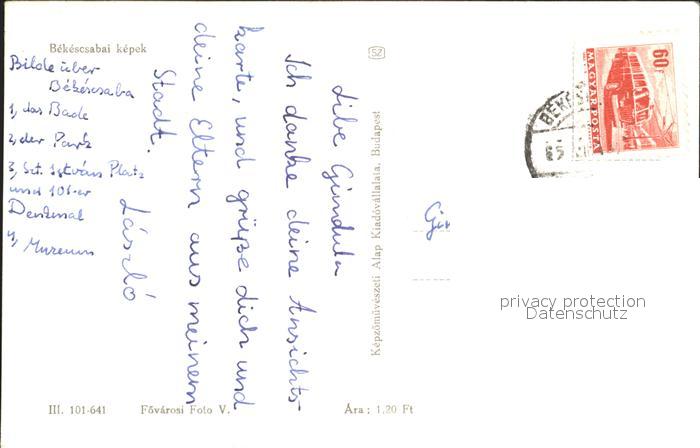 Békéscsabai képek
Bilde über
Békéscsaba
1, das Bade
2, der Park
3, Szt. István Platz
und 101-er
Denkmal
4, Museum
Libe Gundula
Ich danke deine Ansichts-
karte, und grüße dich und
deine Eltern aus meinem
Stadt.
László
III. 101-641 Fővárosi Foto V. Ára: 1,20 Ft
SZ
Képzőművészeti Alap Kiadóvállalata, Budapest
60f
MAGYAR POSTA
BÉKÉSCS
privacy protection
Datenschutz